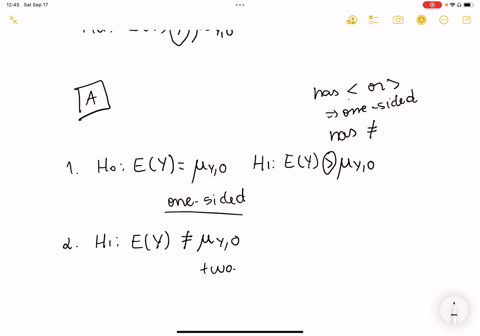 12:45 Sat Sep 17
A
has < or >
⇒ one-sided
has ≠
1. H₀: E(Y) = μY,0 H₁: E(Y) > μY,0
one-sided
2. H₁: E(Y) ≠ μY,0
two-